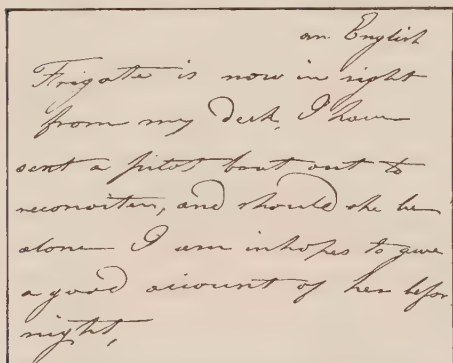 an English
Frigate is now in sight
from my deck, I have
sent a pilot boat out to
reconoiter, and should she be
alone I am in hopes to give
a good account of her befor
night,